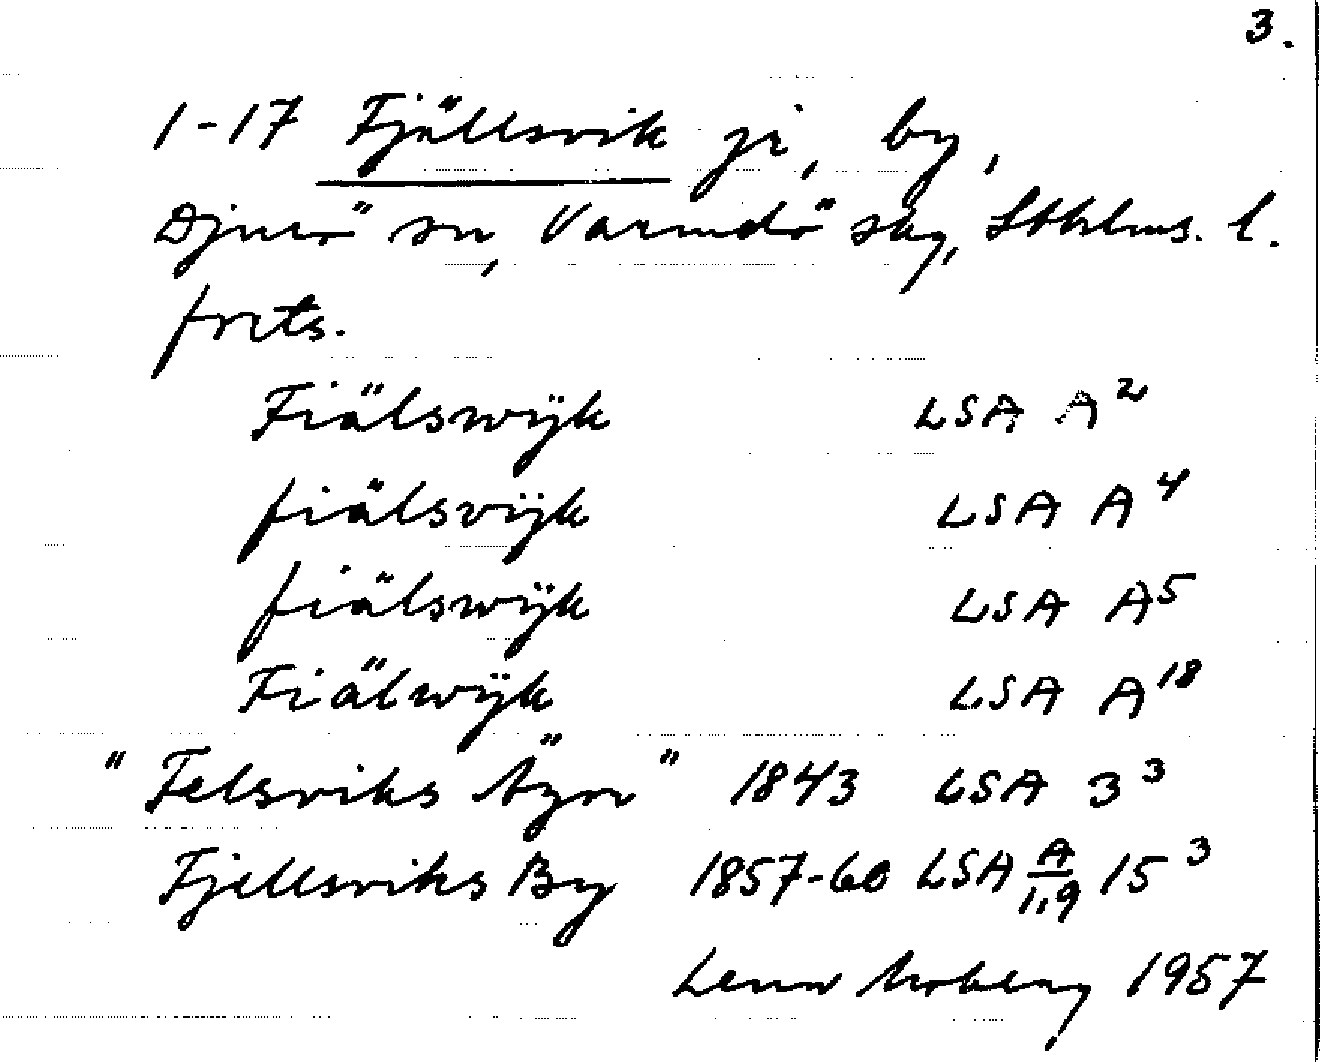 3.
1-17 Fjällsvik ji, by,
Djurö sn, Värmdö skg, Sthlms. l.
forts.
Fiälswÿk LSA A²
fiälsvÿk LSA A⁴
fiälswÿk LSA A⁵
Fiälwÿk LSA A¹⁸
"Felsviks Ägor" 1843 LSA 3³
Fjellsviks By 1857-60 LSA A/1,9 15³
Lenn Moberg 1957